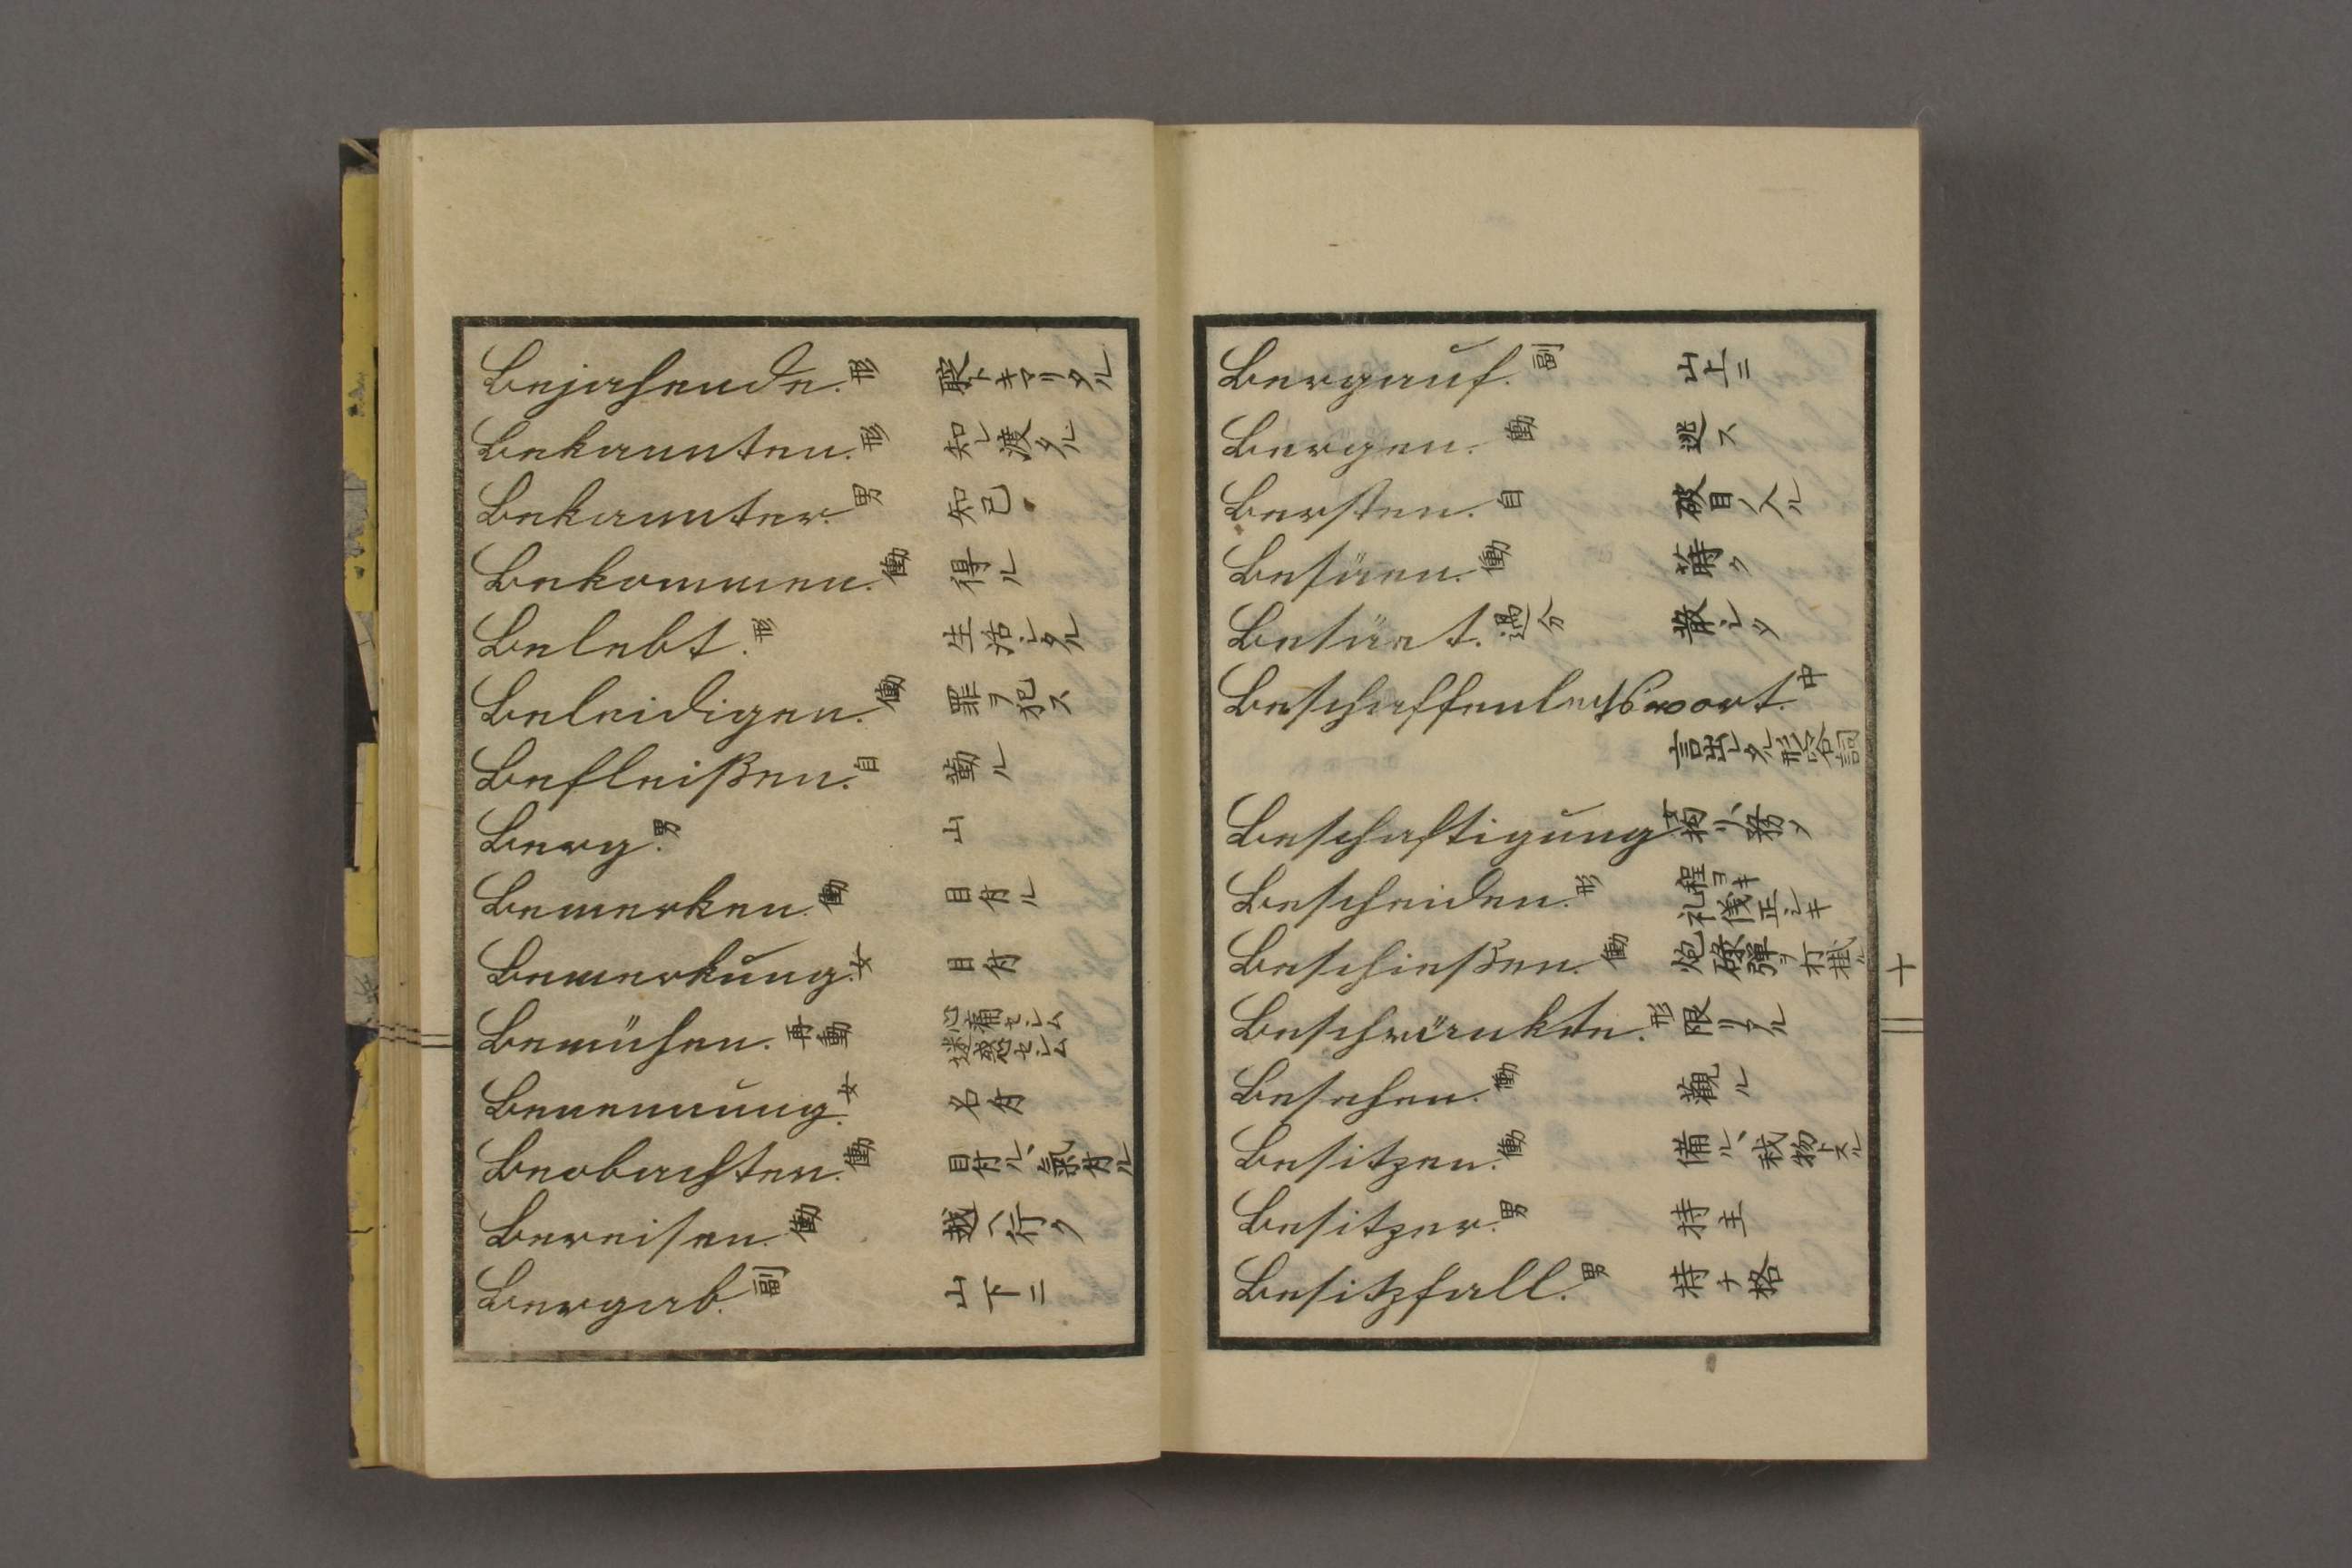 Bejahende. 形 聢トキマリタル
Bekannten. 形 知レ渡タル
Bekannter. 男 知己
Bekommen. 働 得ル
Belebt. 形 生活シタル
Beleidigen. 働 罪ヲ犯ス
Befleißen. 自 勤ル
Berg. 男 山
Bemerken. 働 目付ル
Bemerkung. 女 目付
Bemühen. 再動 心痛セシム
迷惑セシム
Benennung. 女 名付
Beobachten. 働 目付ル、氣付ル
Bereisen. 働 越ヘ行ク
Bergab. 副 山下ニ
Bergauf. 副 山上ニ
Bergen. 働 逃ス
Bersten. 自 破目ノ入ル
Besäen. 働 蒔ク
Besäet. 過分 散シツ
Beschaffenheitswort. 中
言出シタル形容詞
Beschaftigung 女 務メ
Bescheiden. 形 程ヨキ
礼儀正シキ
Beschießen. 働 炮碌彈ヲ打掛ル
Beschränkte. 形 限リアル
Besehen. 働 観ル
Besitzen. 働 備ル、我物トスル
Besitzer. 男 持主
Besitzfall. 男 持チ格
十